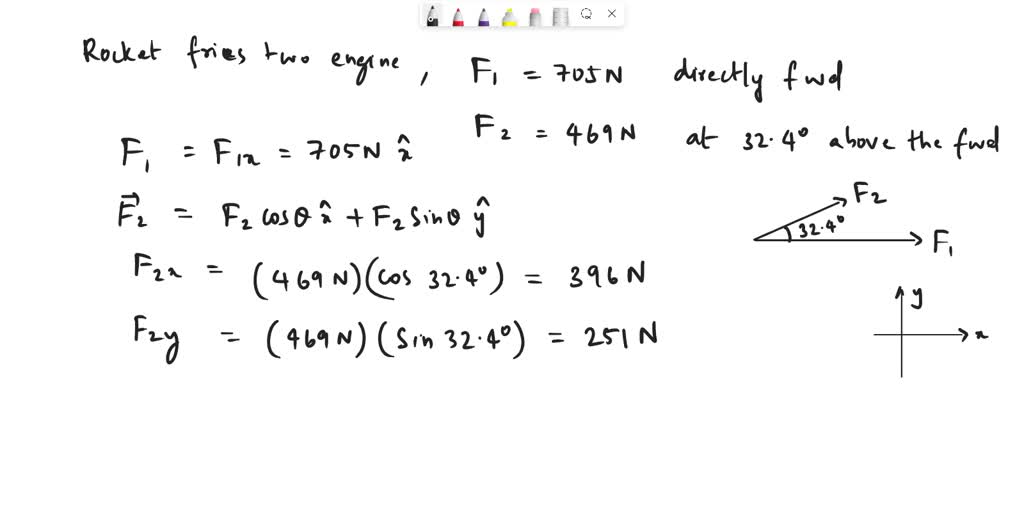 Rocket fries two engine, F₁ = 705N directly fwd
F₂ = 469N at 32.4° above the fwd
F₁ = F₁ₓ = 705N x̂
F⃗₂ = F₂ cosθ x̂ + F₂ Sinθ ŷ
F₂ₓ = (469N)(cos 32.4°) = 396N
F₂y = (469N)(Sin 32.4°) = 251N
F₂
32.4°
F₁
y
x